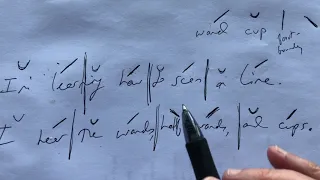 wand cup foot-boundary
I'm learning how to scan a line.
I hear the wands, half wands, and cups.